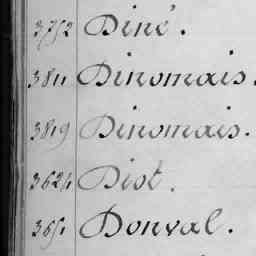 3752 Diné.
3811 Dinomais.
3819 Dinomais.
3624 Diot.
3651 Donval.